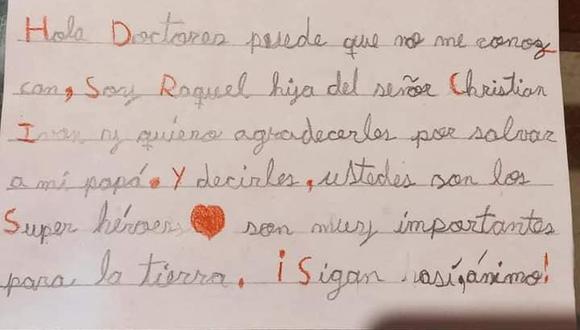 Hola Doctores puede que no me conoz
can, Soy Raquel hija del señor Christian
Ivan y quiero agradecerles por salvar
a mí papá. Y decirles, ustedes son los
Super héroers son muy importantes
para la tierra. ¡Sigan así,ánimo!